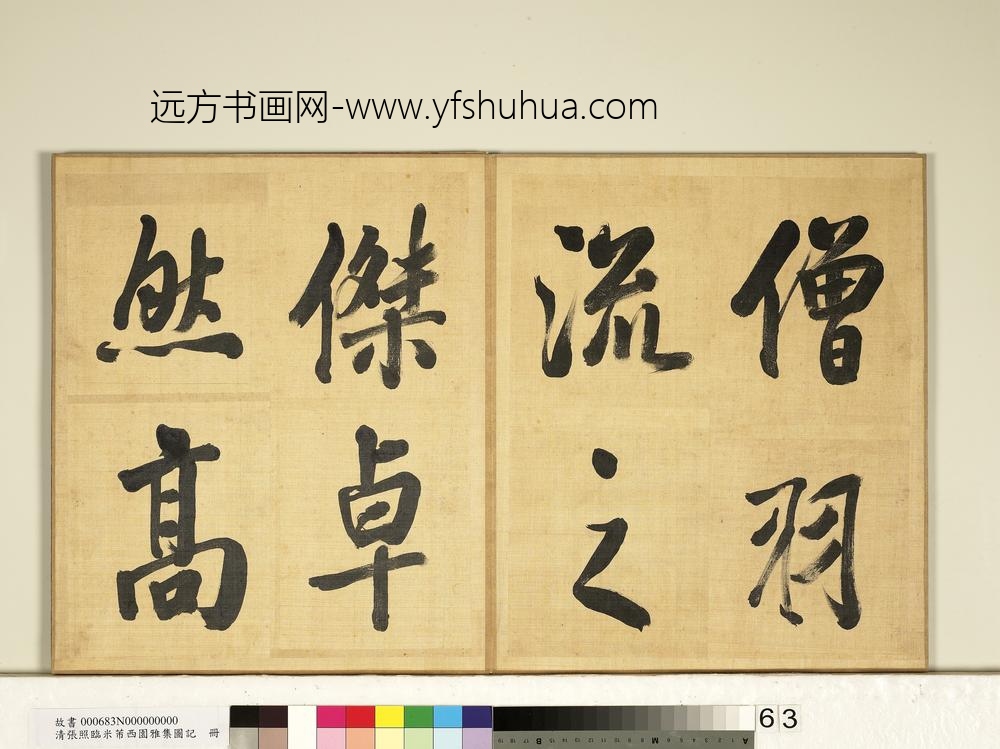 远方书画网-www.yfshuhua.com
僧羽
流之
傑卓
然高
故書 000683N000000000
清張照臨米芾西園雅集圖記 冊
63